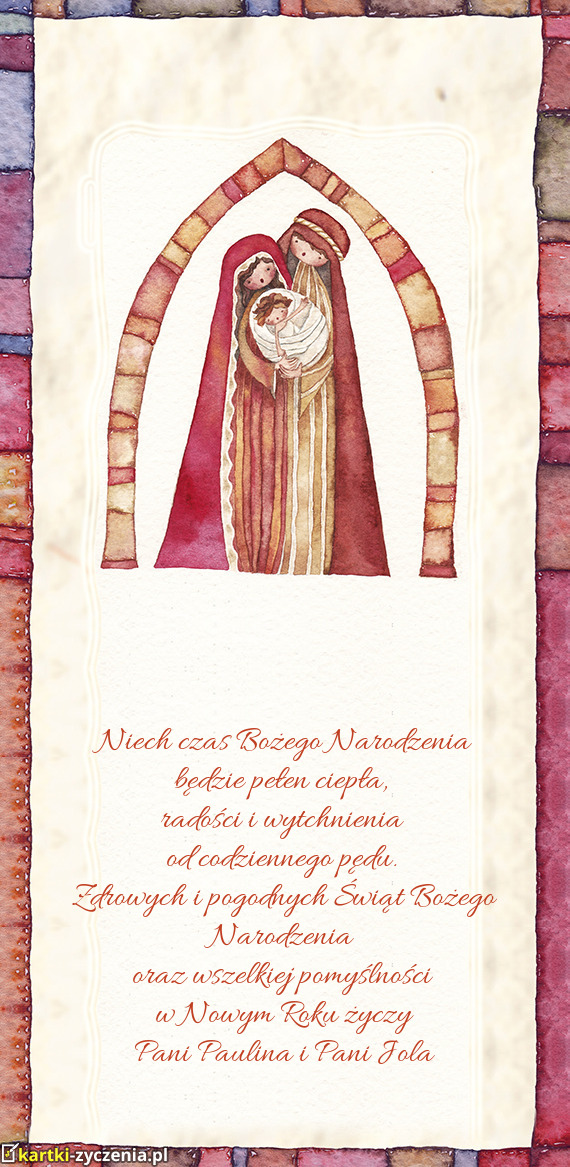 Niech czas Bożego Narodzenia
będzie pełen ciepła,
radości i wytchnienia
od codziennego pędu.
Zdrowych i pogodnych Świąt Bożego
Narodzenia
oraz wszelkiej pomyślności
w Nowym Roku życzy
Pani Paulina i Pani Jola
kartki-zyczenia.pl